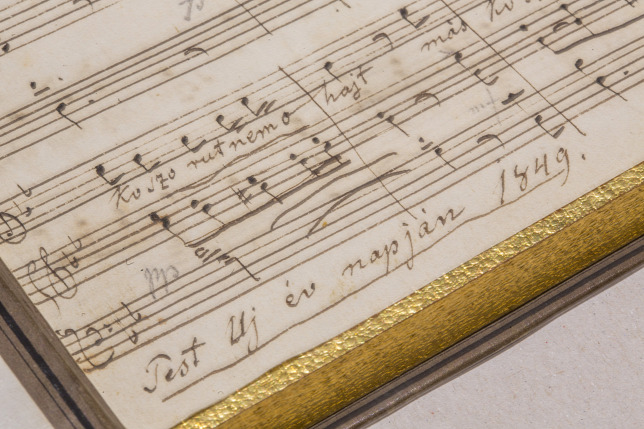 hajt más
Koszo rut nemo
Pest Uj év napján 1849.